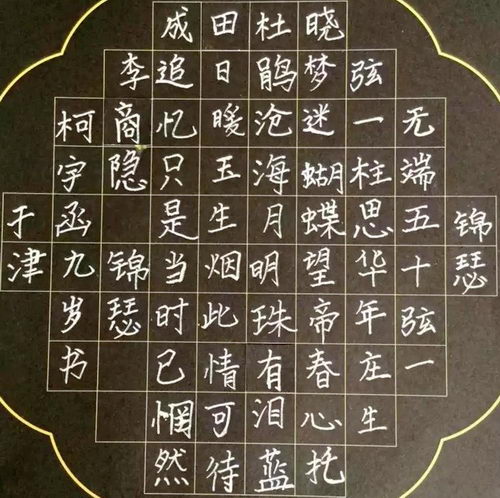 锦瑟
无端五十弦一
弦一柱思华年庄生
晓梦迷蝴蝶望帝春心托
杜鹃沧海月明珠有泪蓝
田日暖玉生烟此情可待
成追忆只是当时已惘然
李商隐 锦瑟
柯宇函九岁书
于津